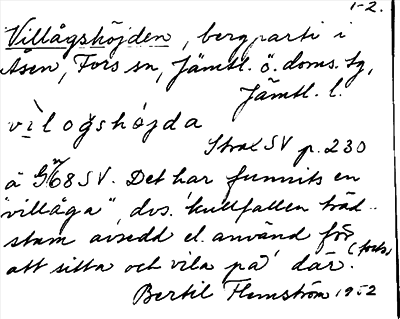 1-2.
Villågshöjden, bergparti i
Åsen, Fors sn, Jämtl. ö. doms. tg,
Jämtl. l.
vìlogshøjda
Strax SV p. 230
å G768SV. Det har funnits en
"villåga", dvs. kullfallen träd-
stam avsedd el. använd för
att sitta och vila på där. (forts)
Bertil Flemström 1952